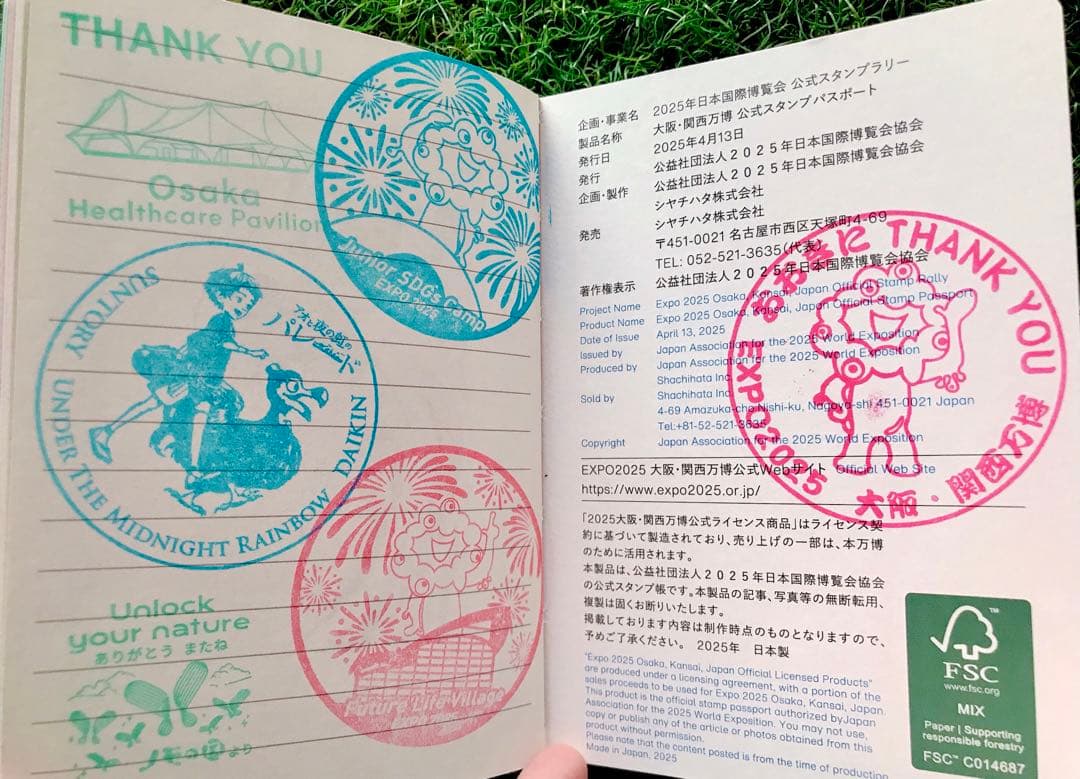 THANK YOU
Osaka
Healthcare Pavilion
Junior SDGs Camp
EXPO 2025
SUNTORY UNDER THE MIDNIGHT RAINBOW DAIKIN
アオと夜の虹の
パレード
Future Life Village
EXPO 2025
Unlock
your nature
ありがとう またね
企画・事業名 2025年日本国際博覧会 公式スタンプラリー
製品名称 大阪・関西万博 公式スタンプパスポート
発行日 2025年4月13日
発行 公益社団法人2025年日本国際博覧会協会
企画・製作 公益社団法人2025年日本国際博覧会協会
シヤチハタ株式会社
発売 シヤチハタ株式会社
〒451-0021 名古屋市西区天塚町4-69
TEL: 052-521-3635(代表)
著作権表示 公益社団法人2025年日本国際博覧会協会
Project Name Expo 2025 Osaka, Kansai, Japan Official Stamp Rally
Product Name Expo 2025 Osaka, Kansai, Japan Official Stamp Passport
Date of Issue April 13, 2025
Issued by Japan Association for the 2025 World Exposition
Produced by Japan Association for the 2025 World Exposition
Shachihata Inc.
Sold by Shachihata Inc.
4-69 Amazuka-cho Nishi-ku, Nagoya-shi 451-0021 Japan
Tel:+81-52-521-3635
Copyright Japan Association for the 2025 World Exposition
THANK YOU
EXPO2025 大阪・関西万博
EXPO2025 大阪・関西万博公式Webサイト Official Web Site
https://www.expo2025.or.jp/
「2025大阪・関西万博公式ライセンス商品」はライセンス契
約に基づいて製造されており、売り上げの一部は、本万博
のために活用されます。
本製品は、公益社団法人2025年日本国際博覧会協会
の公式スタンプ帳です。本製品の記事、写真等の無断転用、
複製は固くお断りいたします。
掲載しております内容は制作時点のものとなりますので、
予めご了承ください。 2025年 日本製
"Expo 2025 Osaka, Kansai, Japan Official Licensed Products"
are produced under a licensing agreement, with a portion of the
sales proceeds to be used for Expo 2025 Osaka, Kansai, Japan.
This product is the official stamp passport authorized by Japan
Association for the 2025 World Exposition. You may not use,
copy or publish any of the article or photos obtained from this
product without permission.
Please note that the content posted is from the time of production
Made in Japan, 2025
FSC
www.fsc.org
MIX
Paper | Supporting
responsible forestry
FSC™ C014687